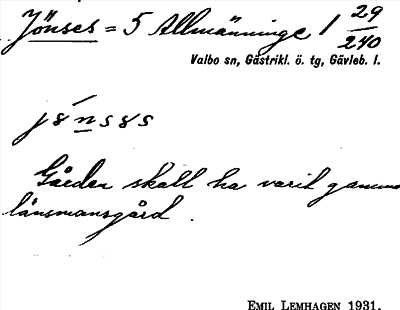 Jönses = 5 Allmänninge 1 29/240
Valbo sn, Gästrikl. ö. tg, Gävleb. l.
Gården skall ha varit gamma
länsmansgård.
EMIL LEMHAGEN 1931.